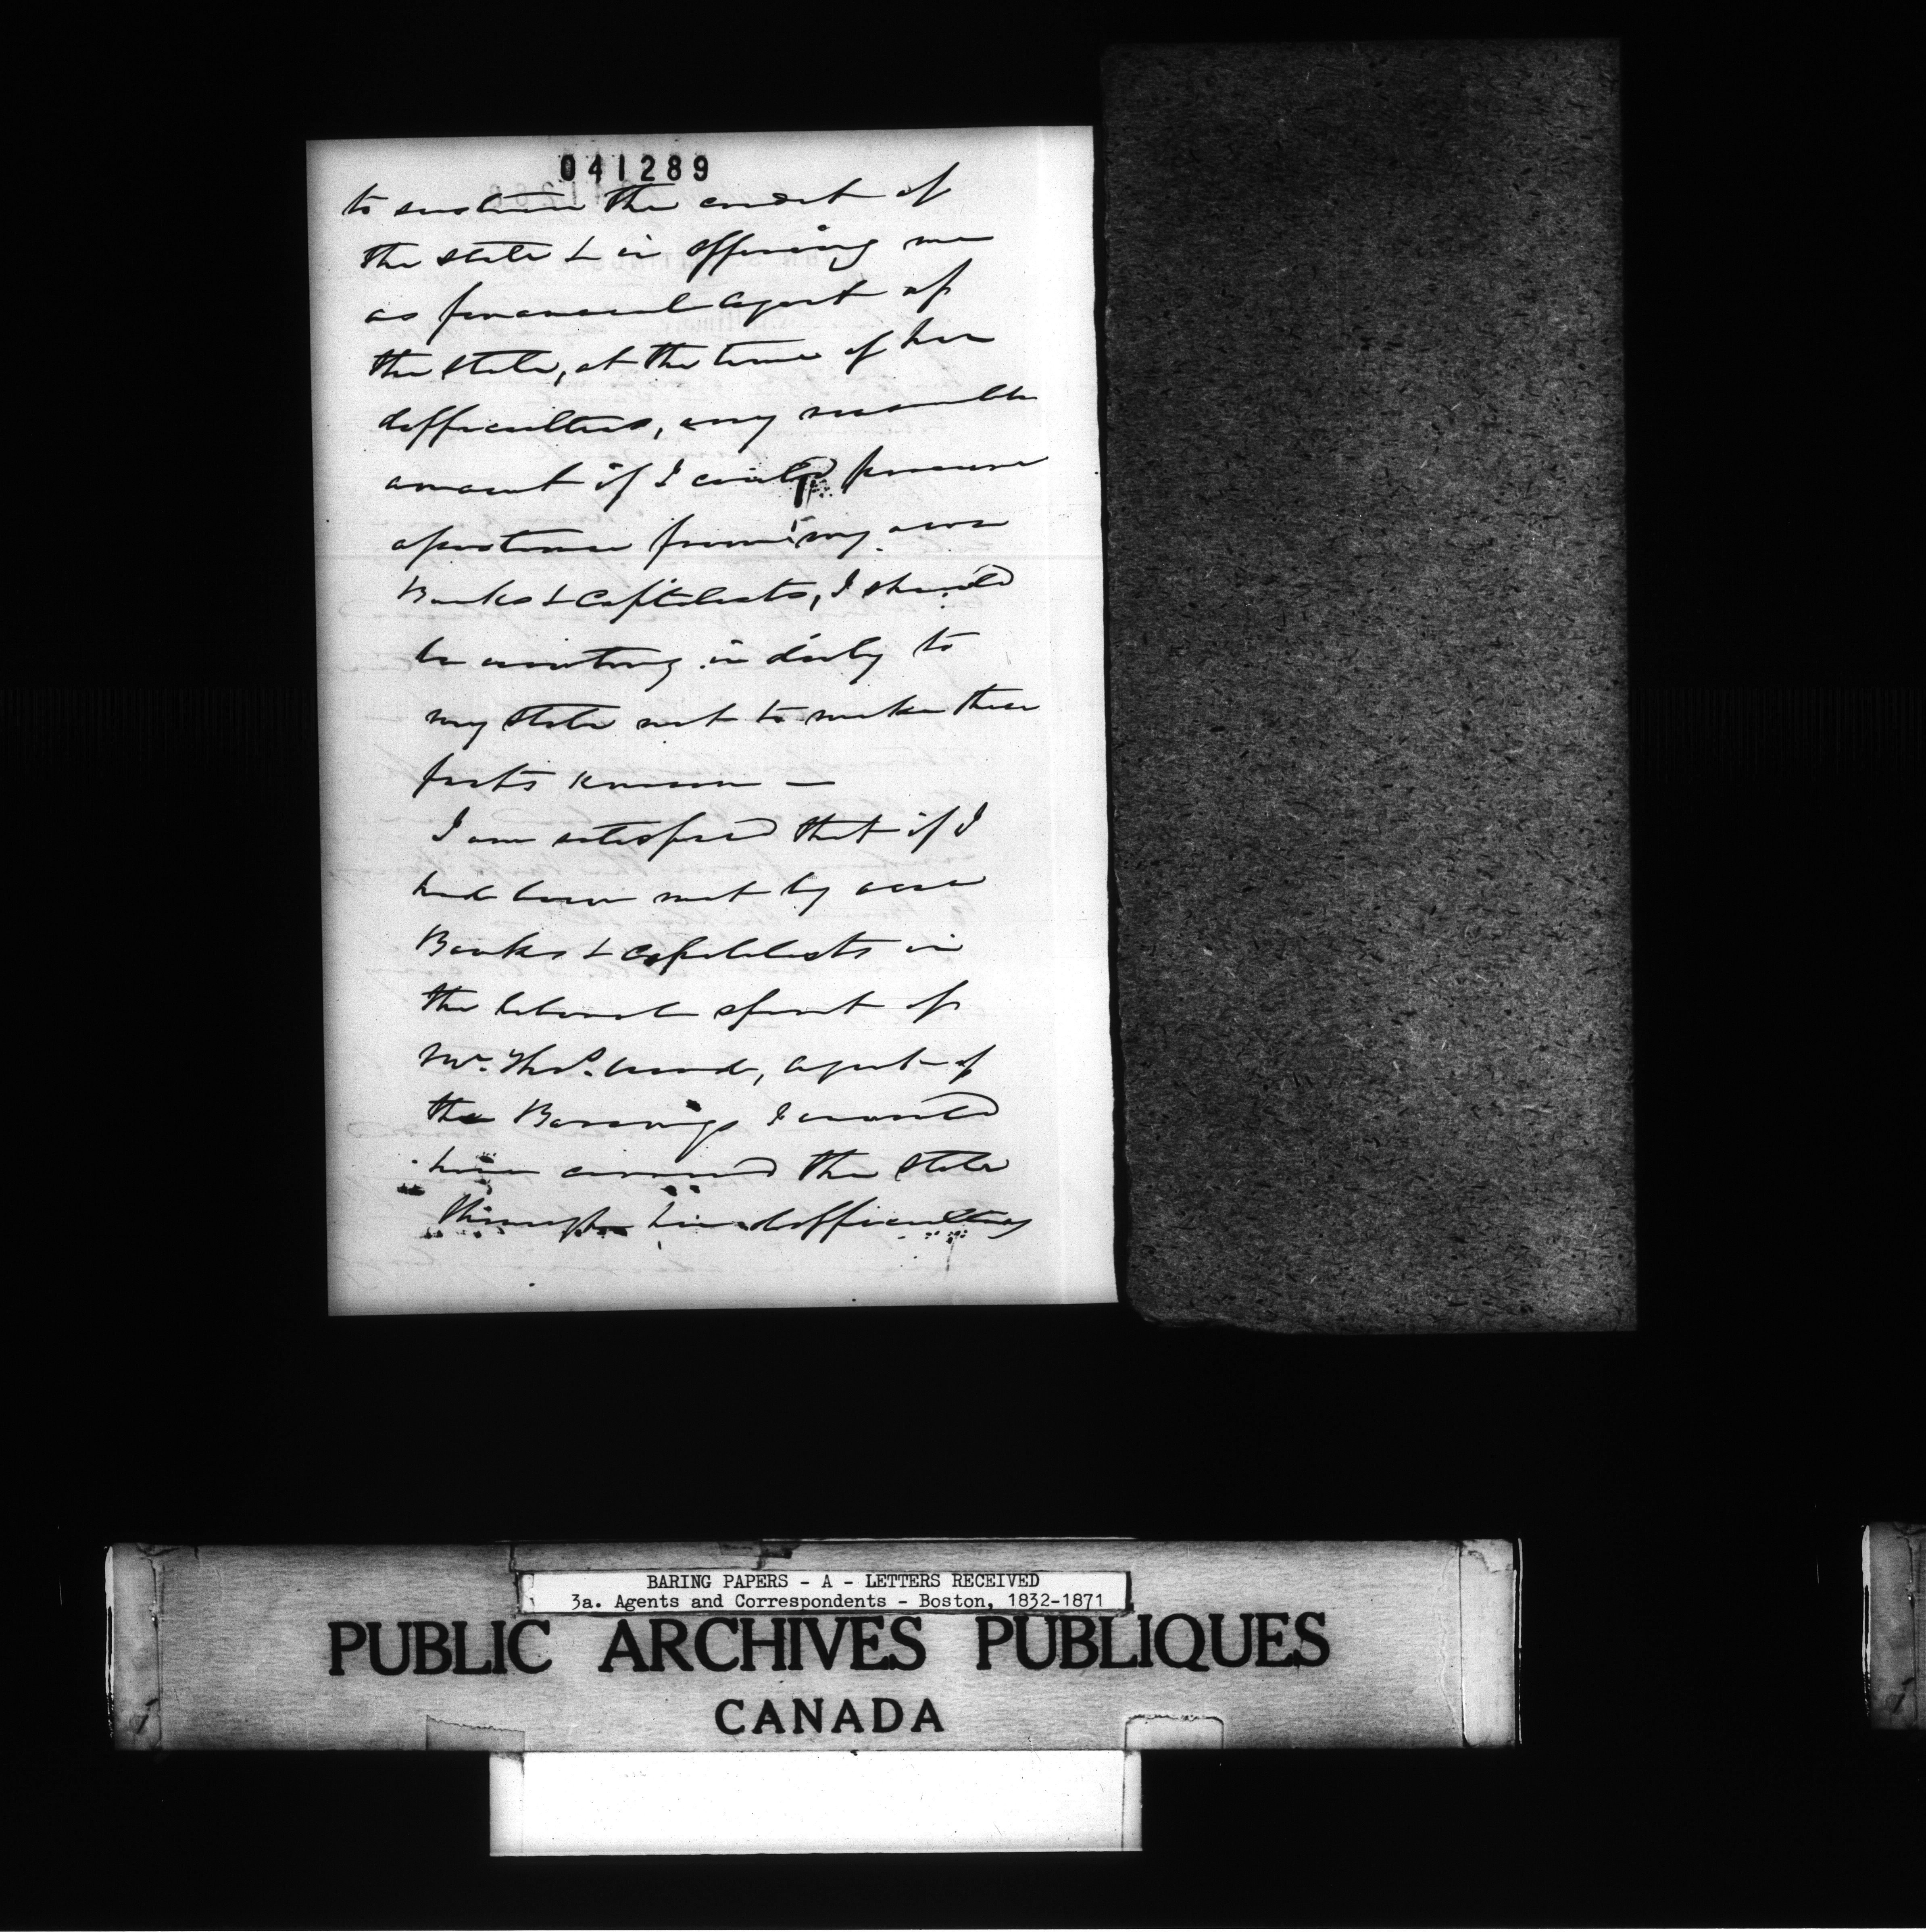 041289
to sustain the credit of
the state & in offering me
as financial agent of
the state, at the time of her
difficulties, any reasonable
amount if I could procure
assistance from my own
Banks & Capitalists, I should
be wanting in duty to
my state not to make these
facts known —
I am satisfied that if I
had been met by our
Banks & capitalists in
the liberal spirit of
Mr. Thos. Ward, agent of
the Barings I would
have carried the state
through her difficulties
BARING PAPERS - A - LETTERS RECEIVED
3a. Agents and Correspondents - Boston, 1832-1871
PUBLIC ARCHIVES PUBLIQUES
CANADA